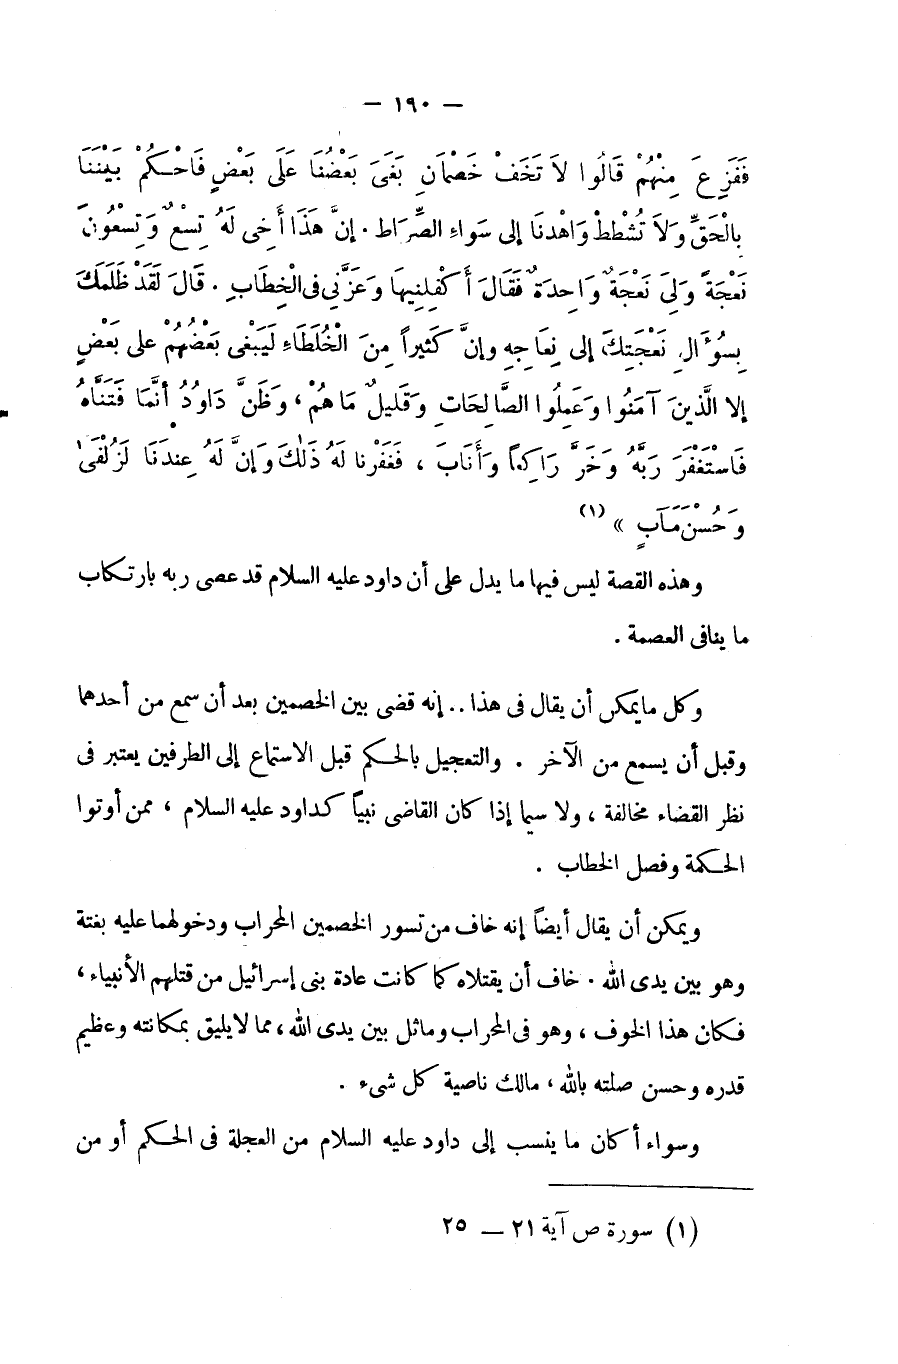 — ١٩٠ —
فَفَزِعَ مِنْهُمْ قَالُوا لاَ تَخَفْ خَصْمَانِ بَغَىَ بَعْضُنَا عَلَى بَعْضٍ فَاحْكُمْ بَيْنَنَا
بِالْحَقِّ وَلاَ تُشْطِطْ وَاهْدنَا إلى سَوَاءِ الصِّرَاط . إنَّ هَذَا أَخِى لَهُ تِسْعٌ وَتِسْعُونَ
نَعْجَةً وَلِىَ نَعْجَةٌ وَاحِدَةٌ فَقَالَ أَكْفِلنِيهَا وَعَزَّنِى فى الْخِطَابِ . قَالَ لَقَدْ ظَلَمَكَ
بِسُؤَالِ نَعْجَتِكَ إلى نِعَاجِهِ وإنَّ كَثيراً مِنَ الْخُلَطَاءِ لَيَبْغِى بَعْضُهُمْ على بَعْضٍ
إلا الَّذينَ آمَنُوا وَعَمِلُوا الصَّالِحَاتِ وَقَليلٌ مَاهُمْ ، وَظَنَّ دَاوُدُ أنَّمَا فَتَنَّاهُ
فَاسْتَغْفَرَ رَبَّهُ وَخَرَّ رَاكِعاً وَأَنَابَ ، فَغَفَرْنا لَهُ ذَلكَ وَإنَّ لَهُ عِندَنَا لَزُلْفَىٰ
وَحُسْنَ مَآبٍ » (١)
وهذه القصة ليس فيها ما يدل على أن داود عليه السلام قد عصى ربه بارتكاب
ما ينافى العصمة .
وكل مايمكن أن يقال فى هذا .. إنه قضى بين الخصمين بعد أن سمع من أحدهما
وقبل أن يسمع من الآخر . والتعجيل بالحكم قبل الاستماع إلى الطرفين يعتبر فى
نظر القضاء مخالفة ، ولا سيما إذا كان القاضى نبياً كداود عليه السلام ، ممن أوتوا
الحكمة وفصل الخطاب .
ويمكن أن يقال أيضاً إنه خاف من تسور الخصمين المحراب ودخولهما عليه بغتة
وهو بين يدى الله . خاف أن يقتلاه كما كانت عادة بنى إسرائيل من قتلهم الأنبياء ،
فكان هذا الخوف ، وهو فى المحراب وماثل بين يدى الله ، مما لايليق بمكانته وعظيم
قدره وحسن صلته بالله ، مالك ناصية كل شىء .
وسواء أكان ما ينسب إلى داود عليه السلام من العجلة فى الحكم أو من
(١) سورة ص آية ٢١ — ٢٥